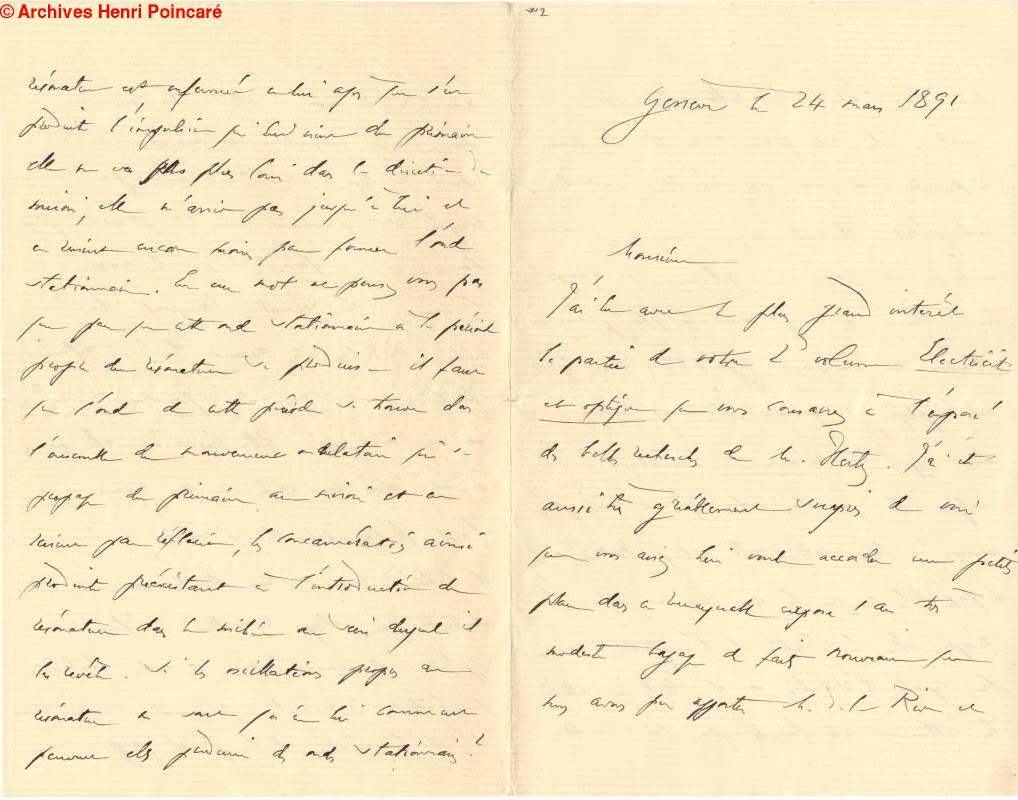 © Archives Henri Poincaré
Genève le 24 mars 1891
Monsieur
J'ai lu avec le plus grand intérêt
la partie de votre 2e volume Electricité
et optique que vous consacrez à l'exposé
des belles recherches de M. Hertz. J'ai été
aussi très agréablement surpris de voir
que vous aviez bien voulu accorder une petite
place dans ce remarquable exposé au très
modeste bagage de faits nouveaux que
nous avons pu apporter M. de la Rive et
résonateur est enfermée en lui après que l'on
produit l'impulsion qui lui vient du primaire
elle ne va pas plus loin dans la direction du
miroir, elle n'arrive pas jusqu'à lui et
en revient encore moins pour former l'onde
stationnaire. En un mot ne pensez vous pas
que pour que cette onde stationnaire à la période
propre du résonateur se produise il faut
que l'onde de cette période se trouve dans
l'ensemble du mouvement ondulatoire qui se
propage du primaire au miroir et en
revient par réflexion, les concamérations ainsi
produites préexistant à l'introduction du
résonateur dans le milieu au sein duquel il
les révèle. Si les oscillations propres au
résonateur ne sont qu'en lui comment
peuvent elles produire des ondes stationnaires?